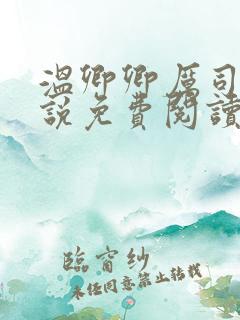 溫卿卿厲司
說免費閱讀
臨窗紗
未经同意禁止转载